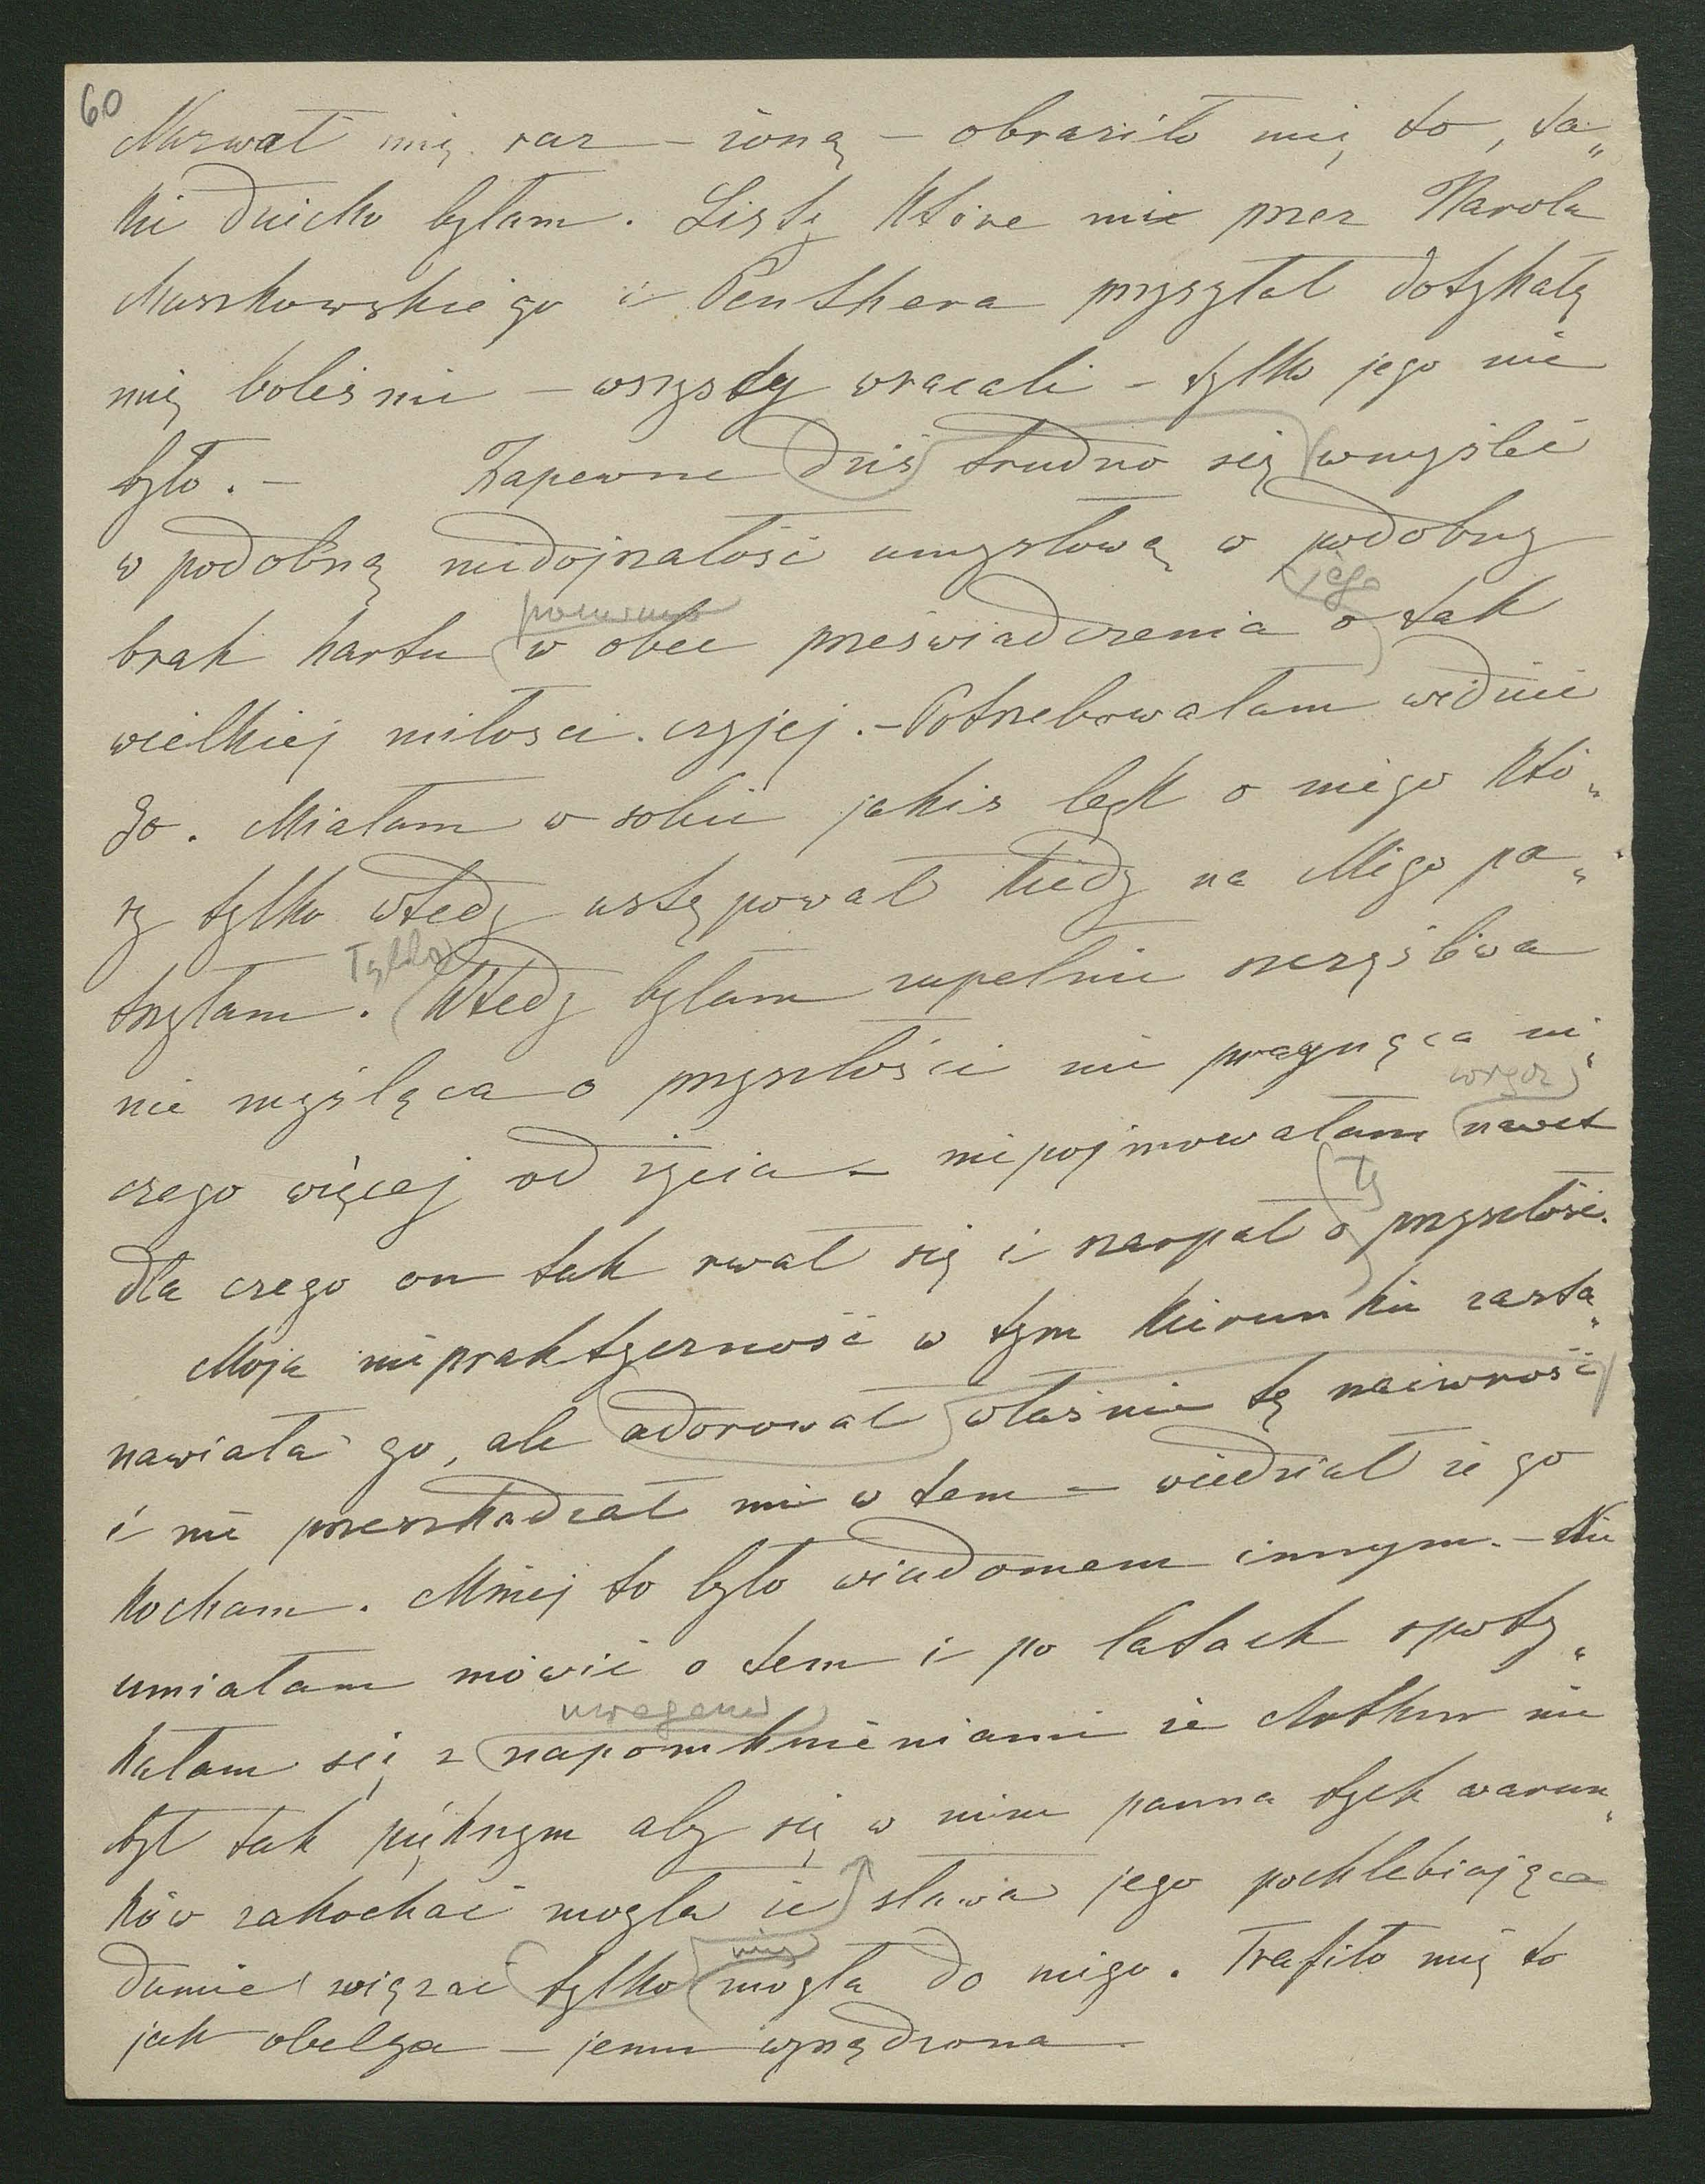 60
Nazwał mię raz – żoną – obraziło mię to, ta„
kie dziecko byłam. Listy które mie przez Karola
Maszkowskiego i Penthera przysyłał dotykały
mię boleśnie – wszyscy wracali – tylko jego nie
było. – Zapewne dziś trudno się wmyśleć
w podobną niedojrzałość umysłową w podobny
jego
pomimo
brak hartu w obec przeświadczenia o tak
wielkiej miłości czyjej. – Potrzebowałam widzieć
go. Miałam w sobie jakiś lęk o niego któ„
ry tylko wtedy ustępował kiedy na Niego pa„
Tylko
trzyłam. Wtedy byłam zupełnie szczęśliwa
nie myśląca o przyszłości nie pragnąca ni„
czego więcej od życia – nie pojmowałam nawet
tę
dla czego on tak rwał się i szarpał o przyszłość.
Moja niepraktyczność w tym kierunku zasta„
nawiała go, ale adorował właśnie tę naiwność
i nie przeszkadzał mi w tem – wiedział że go
kocham. Mniej to było wiadomem innym. – Nie
umiałam mówić o tem i po latach spoty„
uwagami
kałam się z napomknieniami że Arthur nie
był tak pięknym aby się w nim panna tych warun„
ków zakochać mogła że sława jego pochlebiająca
nią
dumie wiązać tylko mogła do niego. Trafiło mię to
jak obelga – jemu wyrządzona